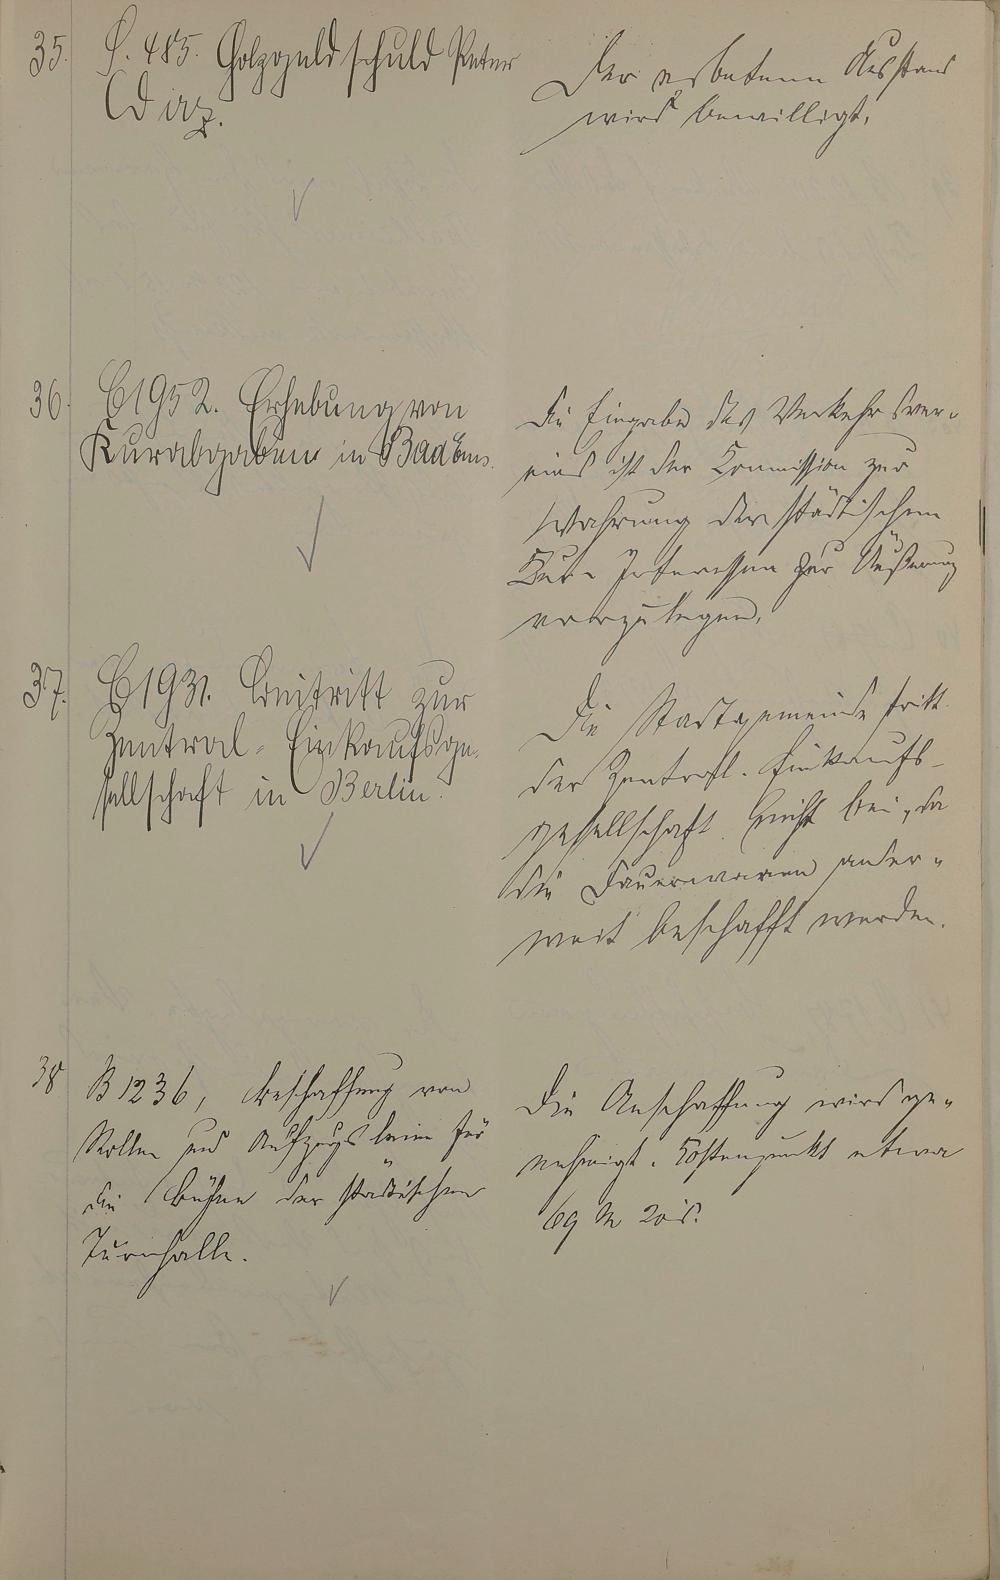 35. P. 485. Holzgeldschuld Peter
Wirz.
Der erbetene Ausstand
wird bewilligt.
36. C 1952. Erhebung von
Kurabgaben in Bad Ems.
Die Eingabe des Verkehrsver-
eins ist der Commission zur
Wahrung der städtischen
Kur-Interessen zur Äußerung
vorzulegen.
37. C 1931. Beitritt zur
Zentral-Einkaufsge-
sellschaft in Berlin.
Die Stadtgemeinde tritt
der Zentral-Einkaufs-
gesellschaft nicht bei, da
die Dauerwaren ander-
weit beschafft werden.
38 B 1236, Beschaffung von
Rollen und Aufzugsleine für
die Bühne der städtischen
Turnhalle.
Die Anschaffung wird ge-
nehmigt. Kostenpunkt etwa
69 M 20